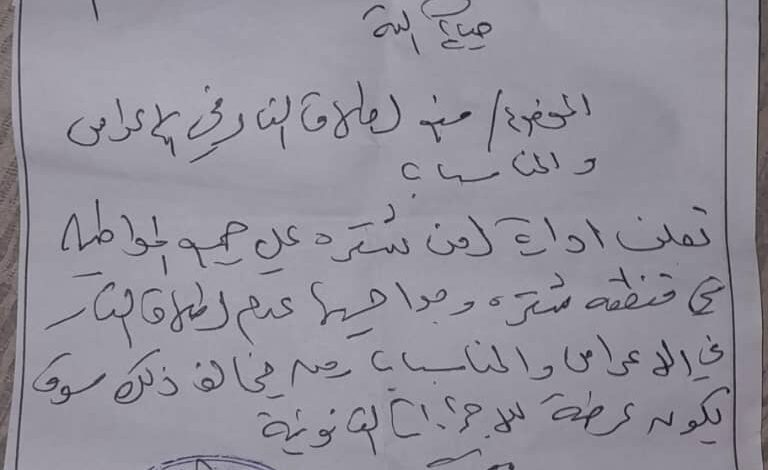 الموضوع/ منع إطلاق النار في الاعراس
والمناسبات
تعلن ادارة امن شقره على جميع المواطنين
في منطقة شقره وضواحيها عدم إطلاق النار
في الاعراس والمناسبات ومن يخالف ذلك سوف
يكون عرضة للإجراءات القانونية